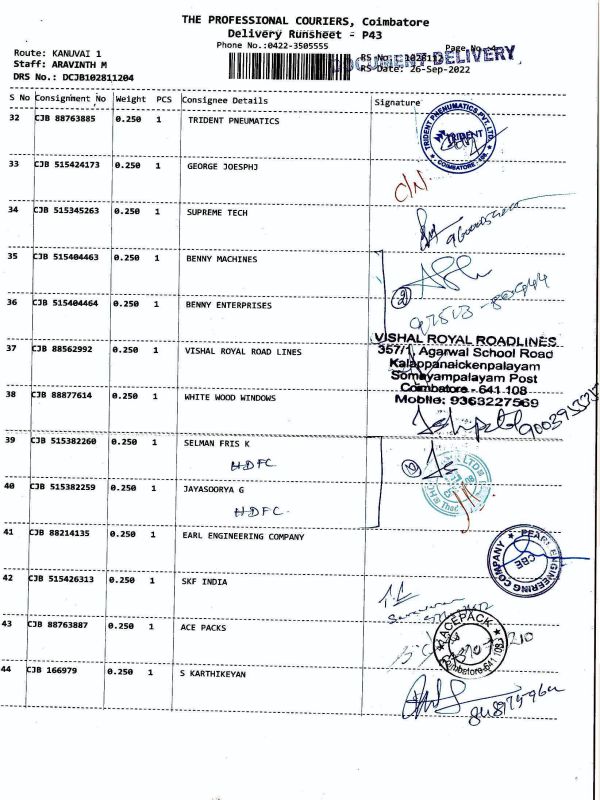 THE PROFESSIONAL COURIERS, Coimbatore
Delivery Runsheet - P43
Phone No.:0422-3505555
Page No.
Route: KANUVAI 1
DOCUMENT DELIVERY
RS No:
Staff: ARAVINTH M
RS Date: 26-Sep-2022
DRS No.: DCJB102811204
S No Consignment No Weight PCS Consignee Details Signature
32 CJB 88763885 0.250 1 TRIDENT PNEUMATICS
TRIDENT PNEUMATICS PVT. LTD.
TRIDENT
COIMBATORE
33 CJB 515424173 0.250 1 GEORGE JOESPHJ
34 CJB 515345263 0.250 1 SUPREME TECH
35 CJB 515404463 0.250 1 BENNY MACHINES
2
36 CJB 515404464 0.250 1 BENNY ENTERPRISES
VISHAL ROYAL ROADLINES
37 CJB 88562992 0.250 1 VISHAL ROYAL ROAD LINES
357/1, Agarwal School Road
Kalappanaickenpalayam
Somayampalayam Post
Coimbatore - 641 108
Mobile: 9363227569
38 CJB 88877614 0.250 1 WHITE WOOD WINDOWS
39 CJB 515382260 0.250 1 SELMAN FRIS K
HDFC
40 CJB 515382259 0.250 1 JAYASOORYA G
HDFC
41 CJB 88214135 0.250 1 EARL ENGINEERING COMPANY
PEARL ENGINEERING COMPANY
CBE
42 CJB 515426313 0.250 1 SKF INDIA
43 CJB 88763887 0.250 1 ACE PACKS
ACEPACK
Coimbatore-641
44 CJB 166979 0.250 1 S KARTHIKEYAN